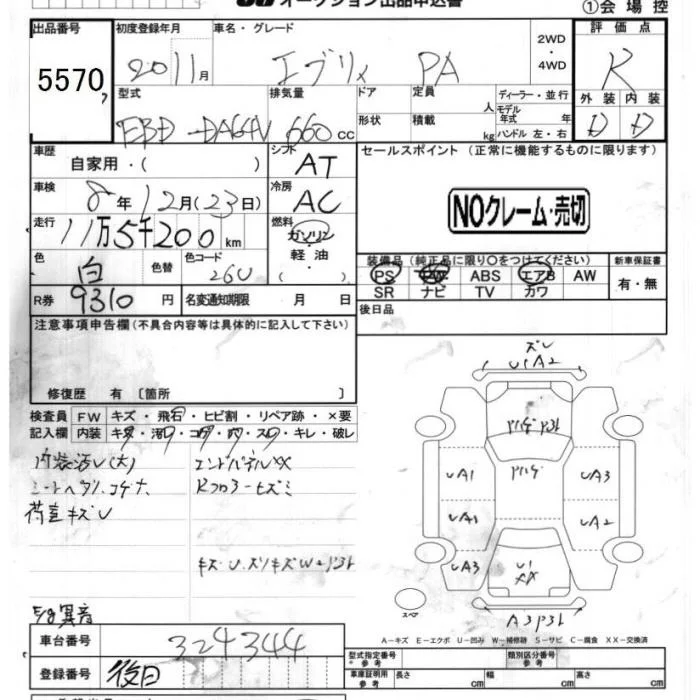 オークション出品申込書
①会場控
出品番号 5570
初度登録年月 20 11月
車名・グレード エブリィ PA
2WD・4WD
評価点 R
外装 D 内装 D
型式 EBD-DA64V
排気量 660 cc
ドア 形状
定員 人
積載 kg
ディーラー・並行
モデル年式 年
ハンドル 左・右
車歴 自家用・( )
シフト AT
セールスポイント (正常に機能するものに限ります)
車検 8年12月(23日)
冷房 AC
NOクレーム・売切
走行 11万5千200km
燃料 ガソリン・軽油・( )
色 白 色替
色コード 26U
装備品(純正品に限り○をつけてください)
新車保証書 有・無
PS PW ABS エアB AW
SR ナビ TV カワ
R券 9310円
名変通知期限 月 日
後日品
注意事項申告欄(不具合内容等は具体的に記入して下さい)
修復歴 有〔箇所 〕
検査員記入欄
FW キズ・飛石・ヒビ割・リペア跡・×要
内装 キズ・汚れ・コゲ・穴・スレ・キレ・破レ
内装汚レ(大)
シートヘタリ.コゲ.ナ
荷室キズU
エンドパネルXX
キズ・U.スリキズW
E/g異音
ズレ
U1A2
UA1
UA3
UA1
UA2
UA3
U1
XX
スペ
A3
A-キズ E-エクボ U-凹み W-補修跡 S-サビ C-腐食 XX-交換済
車台番号 324344
登録番号 後日
型式指定番号 *参考
類別区分番号 *参考
車庫証明用 参考
長さ cm
幅 cm
高さ cm